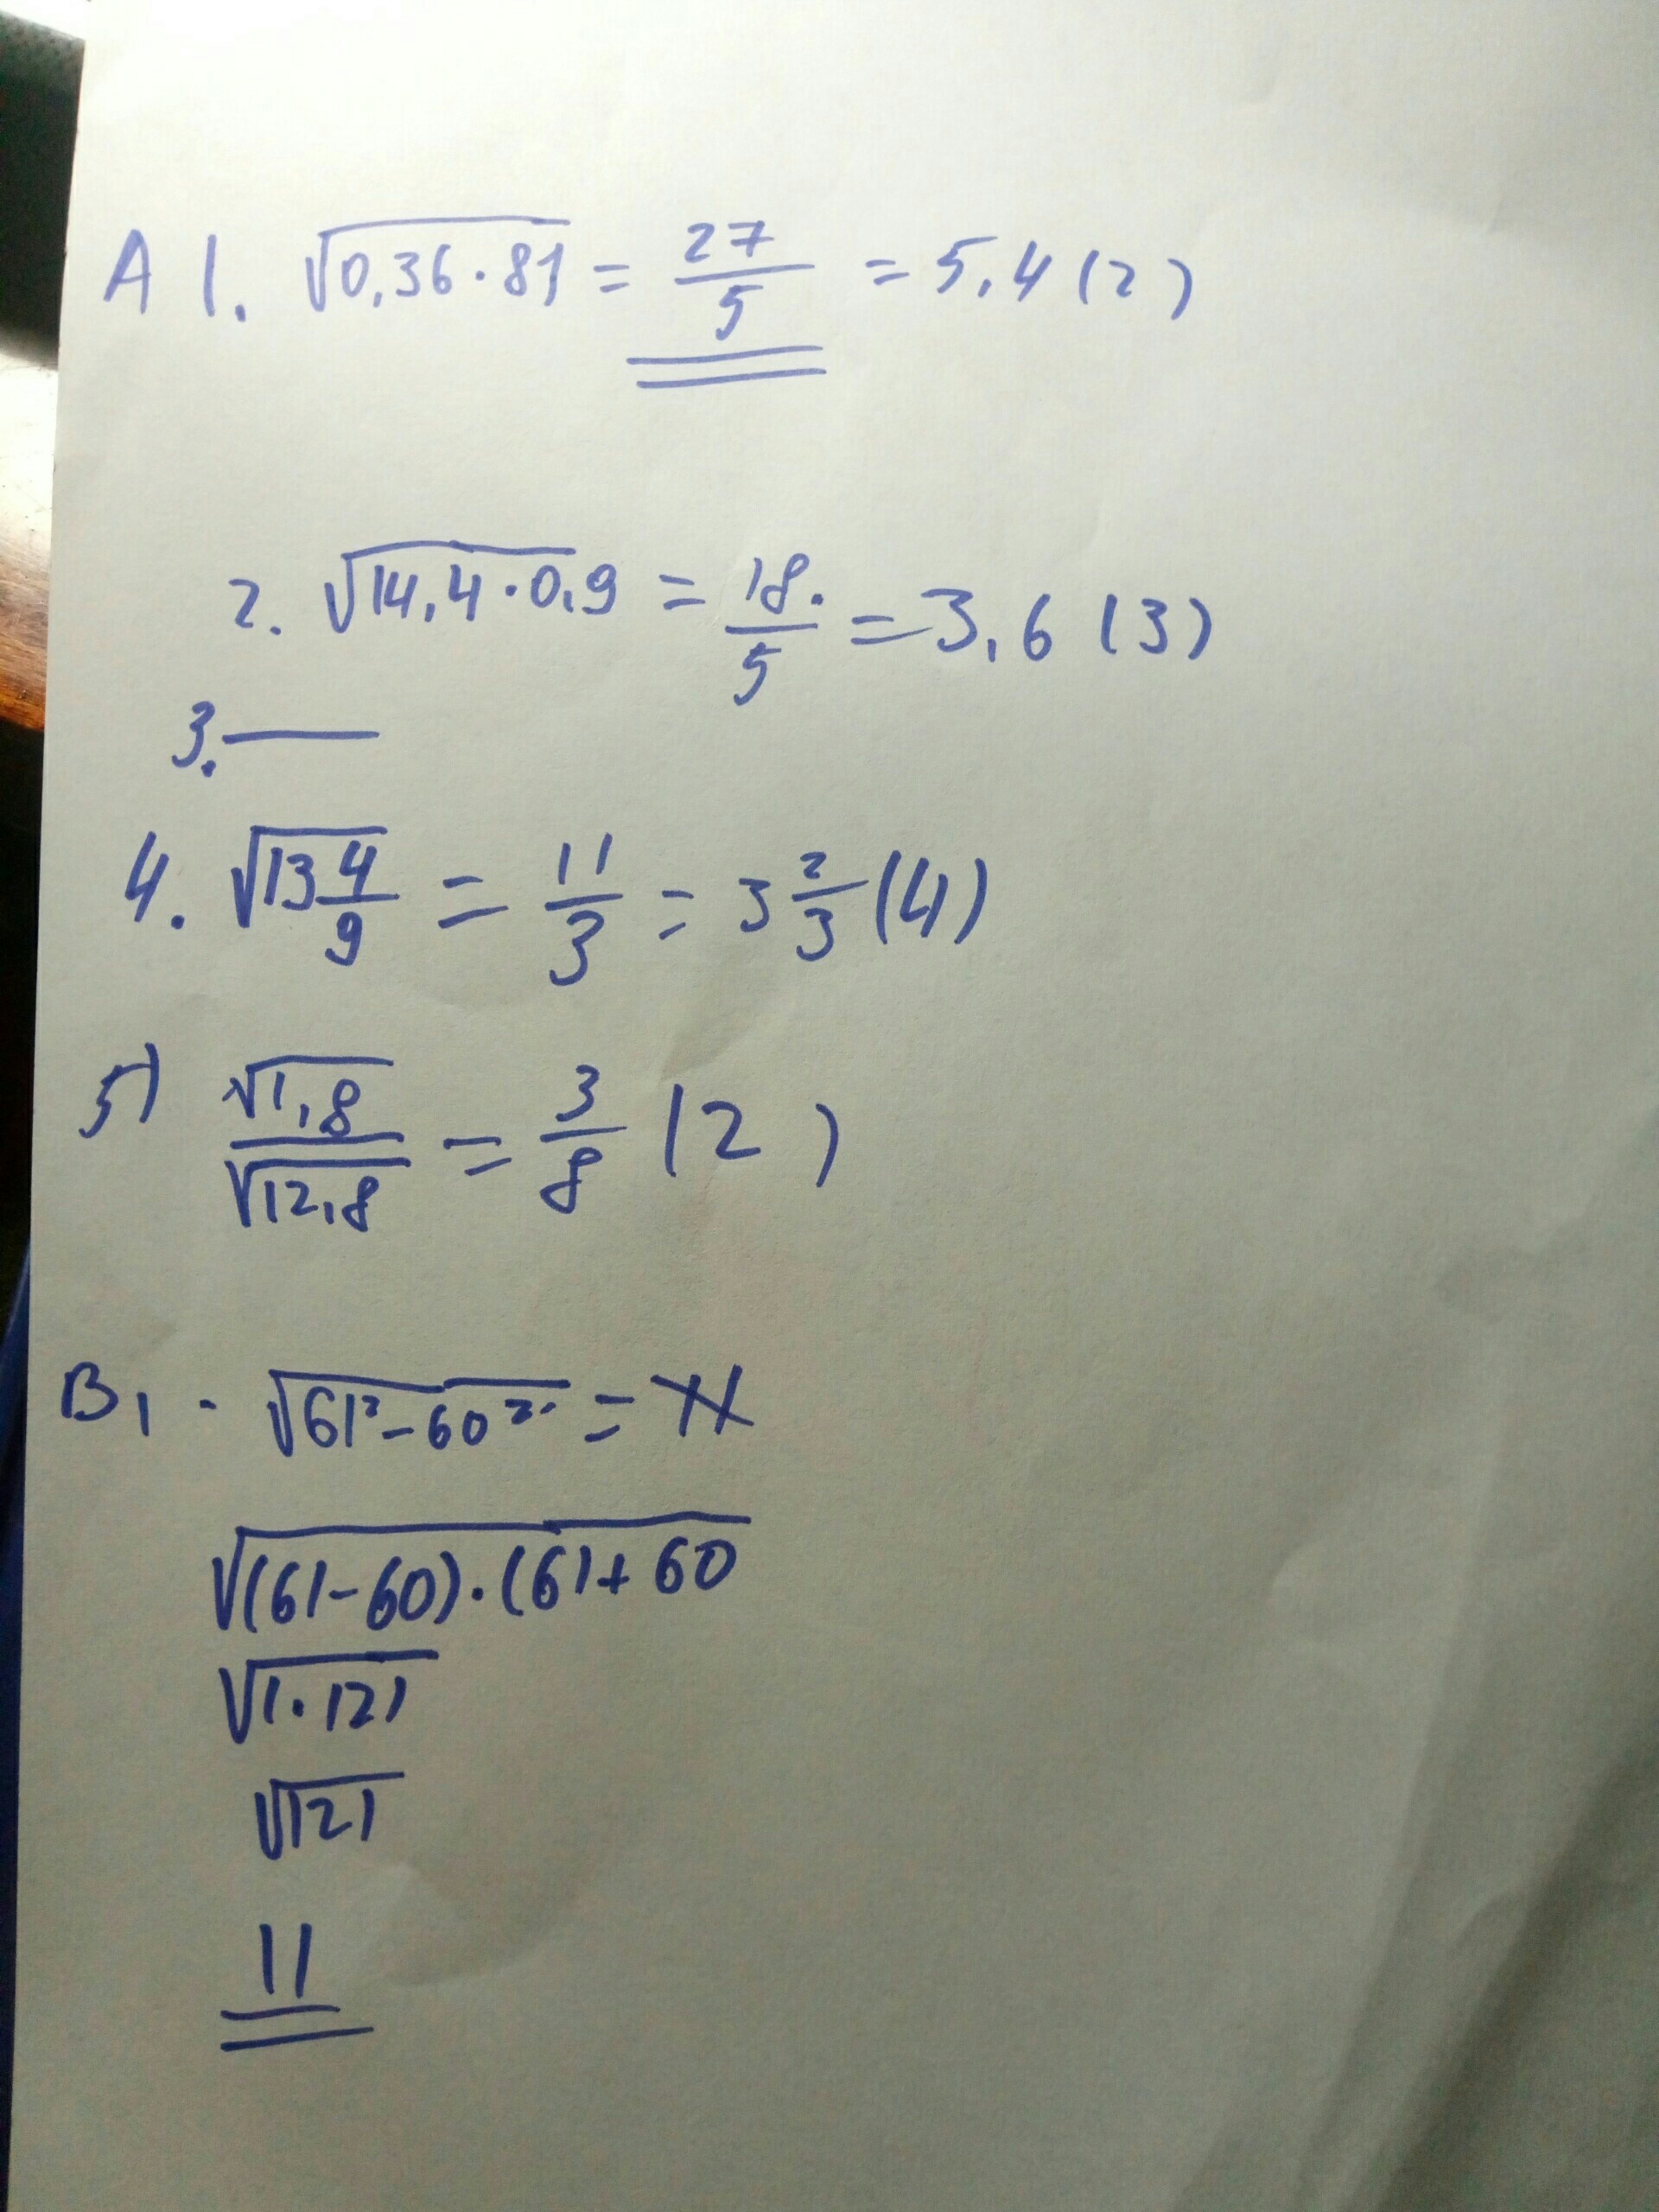 A 1. √0,36·81 = 27/5 = 5,4 (2)
2. √14,4·0,9 = 18./5 = 3,6 (3)
3. —
4. √13 4/9 = 11/3 = 3 2/3 (4)
5) √1,8/√12,8 = 3/8 (2)
B1. √61²-60² =
√(61-60)·(61+60
√1·121
√121
11